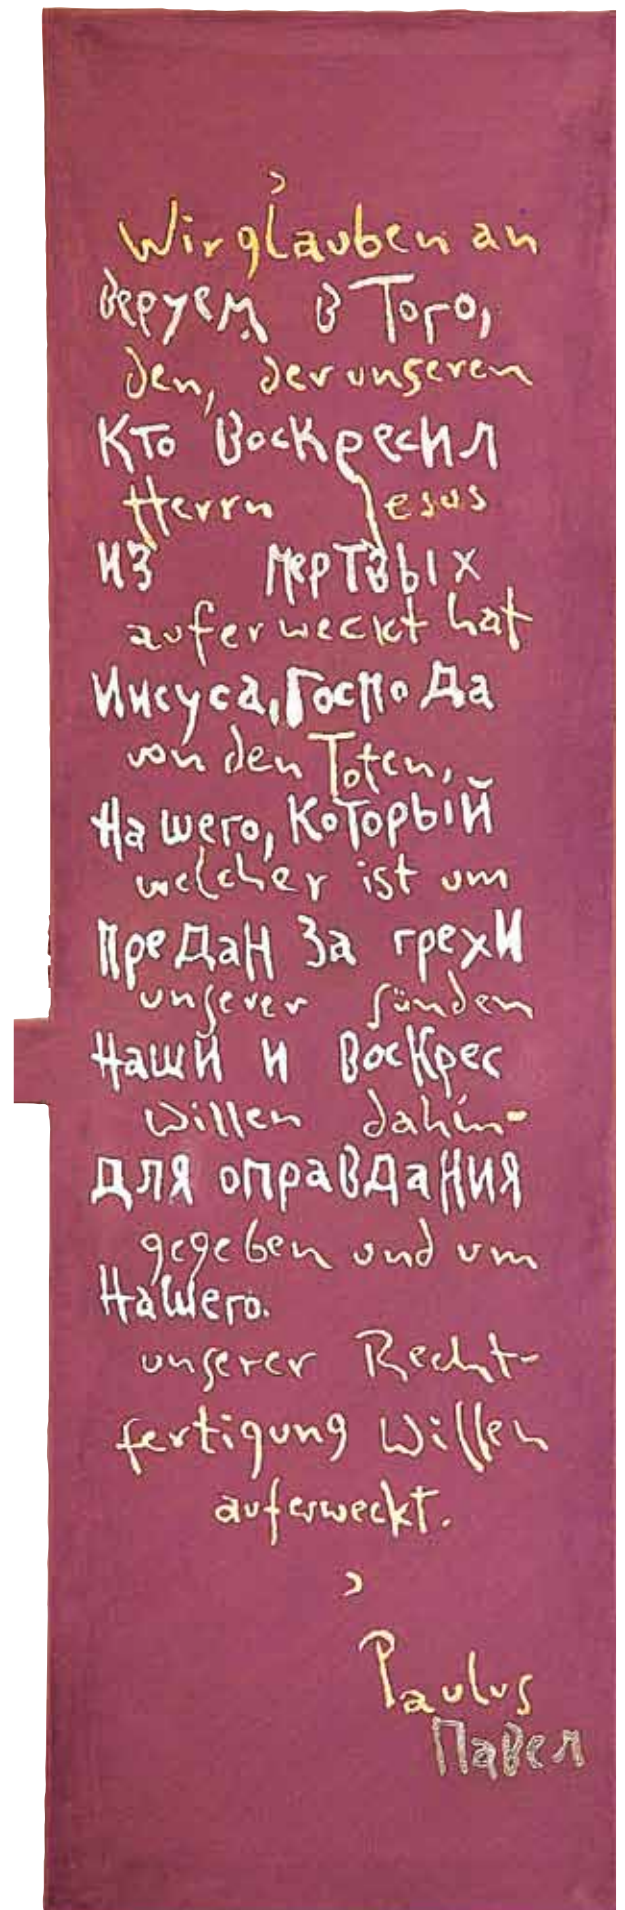 Wir glauben an
Веруем в Того,
den, der unseren
Кто Воскресил
Herrn Jesus
из мертвых
auferweckt hat
Иисуса, Господа
von den Toten,
Нашего, Который
welcher ist um
предан за грехи
unserer Sünden
Наши и Воскрес
willen dahin-
для оправдания
gegeben und um
Нашего.
unserer Recht-
fertigung Willen
auferweckt.
Paulus
Павел